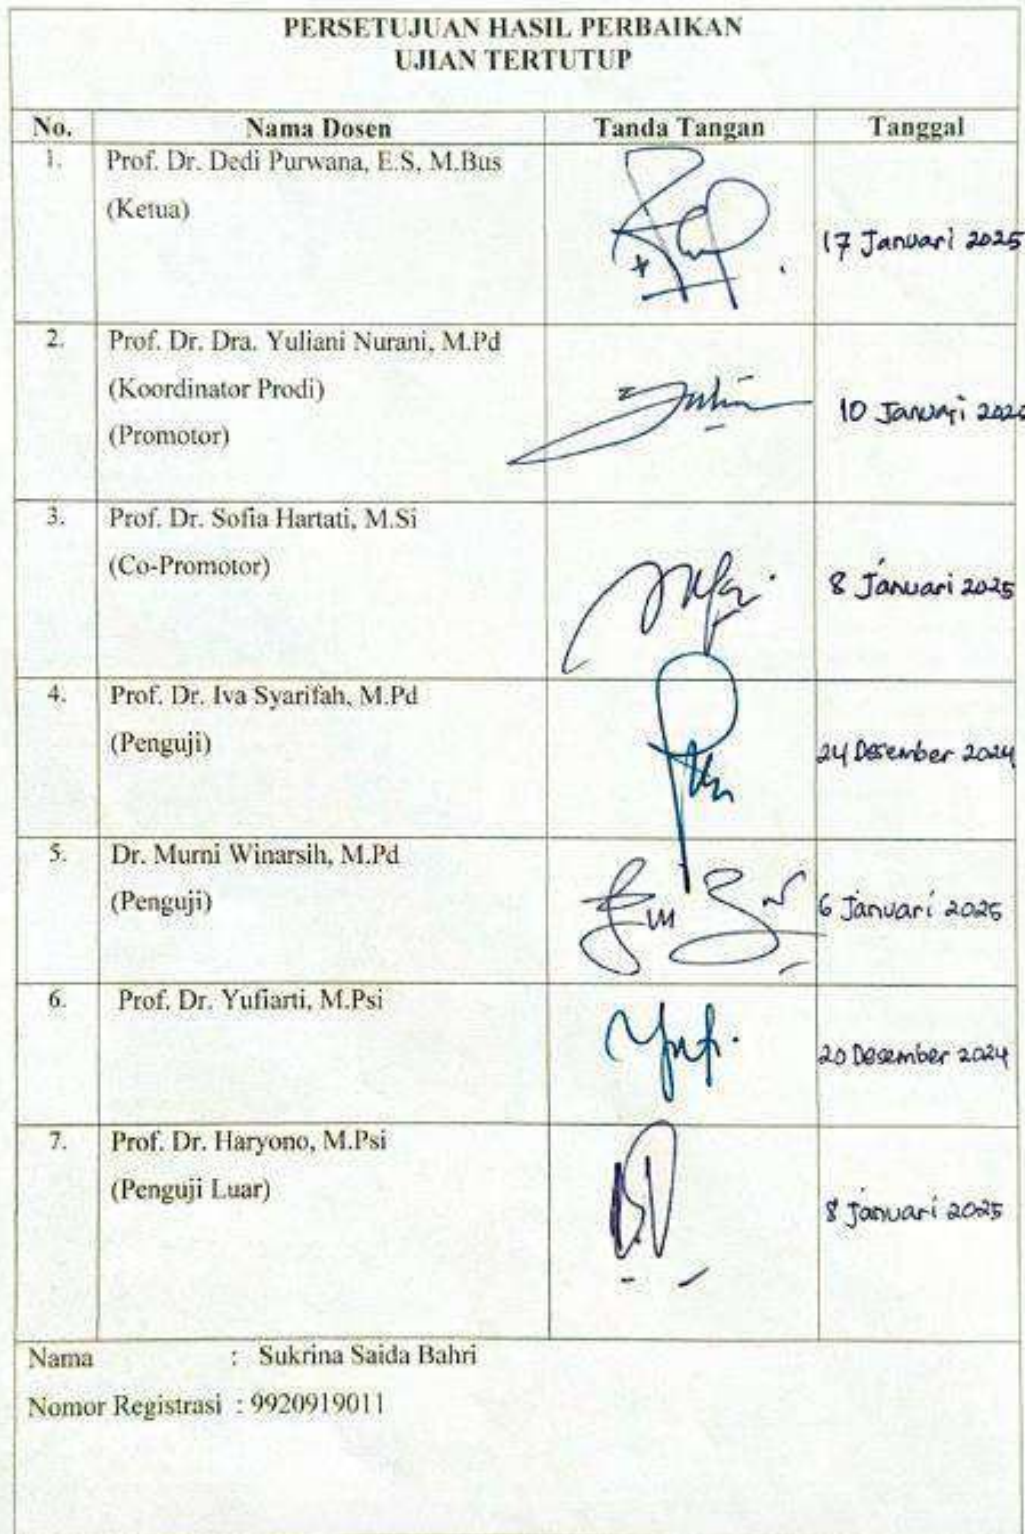 PERSETUJUAN HASIL PERBAIKAN
UJIAN TERTUTUP
No. Nama Dosen Tanda Tangan Tanggal
1. Prof. Dr. Dedi Purwana, E.S, M.Bus
(Ketua)
17 Januari 2025
2. Prof. Dr. Dra. Yuliani Nurani, M.Pd
(Koordinator Prodi)
10 Januari
(Promotor)
3. Prof. Dr. Sofia Hartati, M.Si
(Co-Promotor)
8 Januari 2025
4. Prof. Dr. Iva Syarifah, M.Pd
(Penguji)
24 Desember 2024
5. Dr. Murni Winarsih, M.Pd
(Penguji)
6 Januari 2025
6. Prof. Dr. Yufiarti, M.Psi
20 Desember 2024
7. Prof. Dr. Haryono, M.Psi
(Penguji Luar)
8 Januari 2025
Nama : Sukrina Saida Bahri
Nomor Registrasi : 9920919011